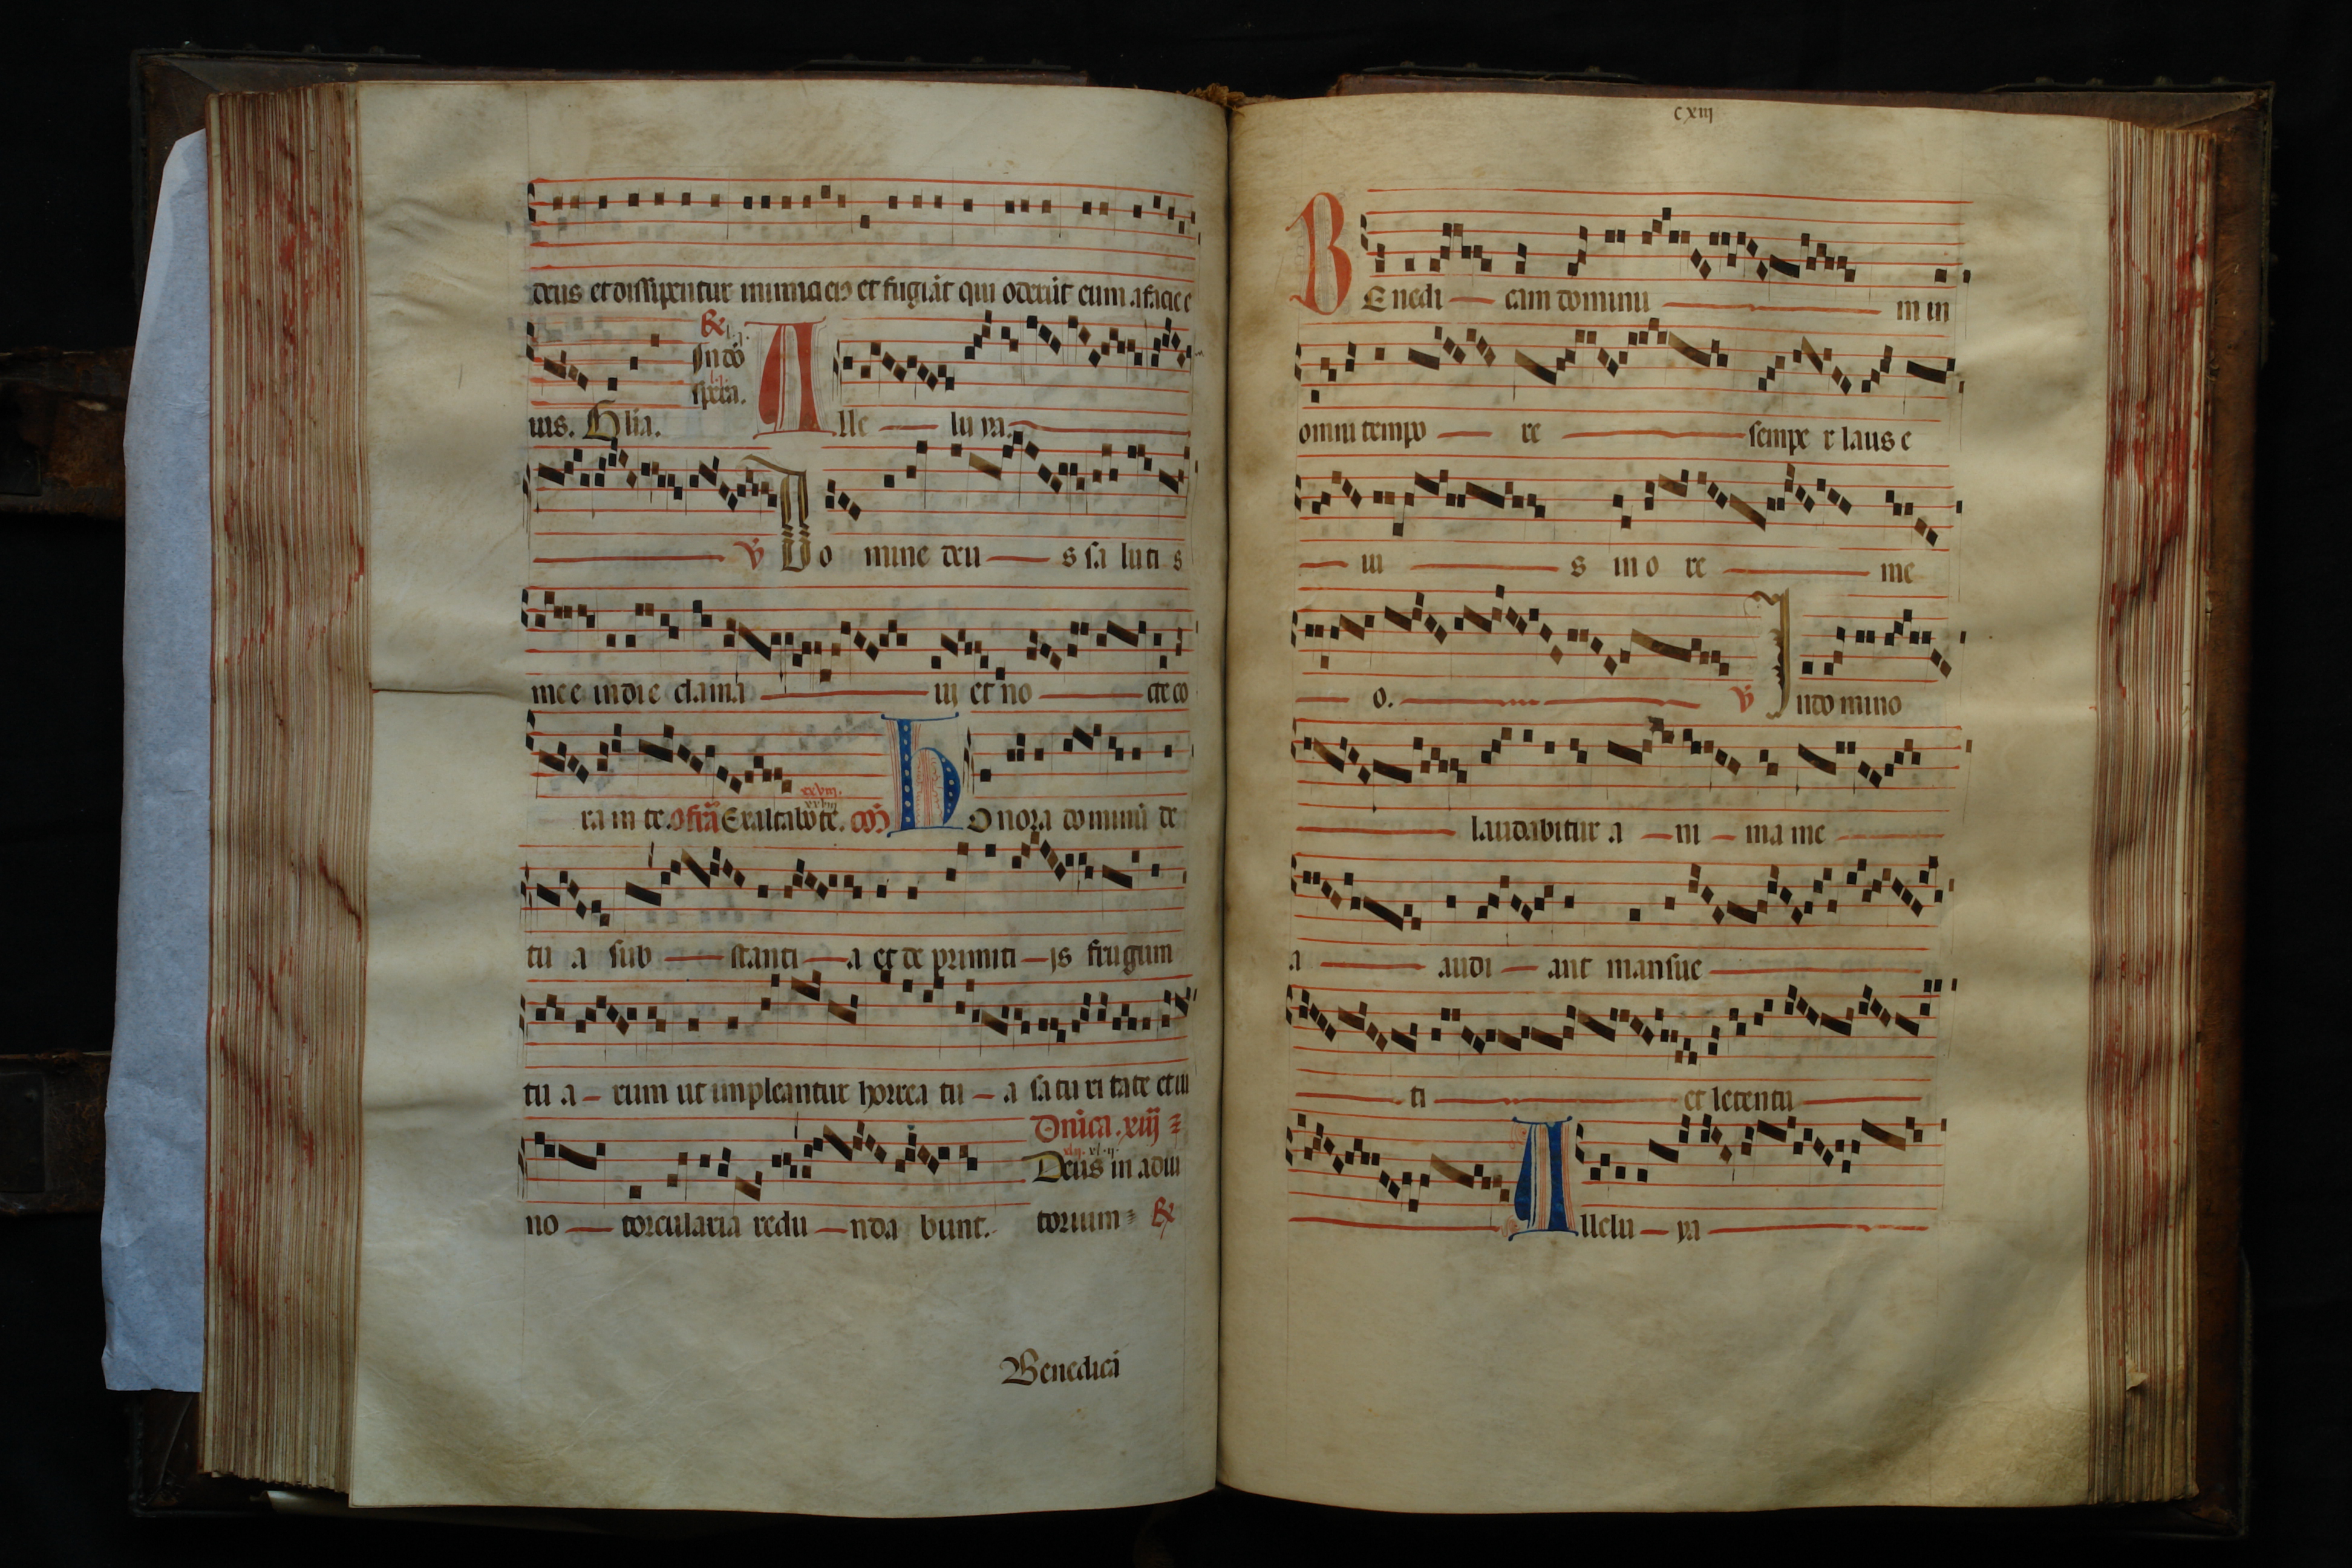 deus et dissipentur inimici eiꝰ et fugiāt qui oderūt eum a facie e
ius. Glia.
In dō
spa.
Alle — lu ya.
℣ Do mine deu — s sa luti s
mee in die clama — ui et no — cte co
ra in te. offr̄a Exaltabo te. xxviij. cō Honora dominū de
tu a sub — stanti — a et de primiti — js frugum
tu a — rum ut impleantur horrea tu — a sa tu ri tate et ui
no — torcularia redu — nda bunt.
Dn̄ica. xiij
Deus in adiu
torium
Benedicā
cxiij
BEnedi — cam dominū — m in
omni tempo — re — sempe r laus e
— iu — s in o re — me
— o. — ℣ In domino
— laudabitur a — ni — ma me —
a — audi — ant mansue —
— ti — et letentu —
Allelu — ya —